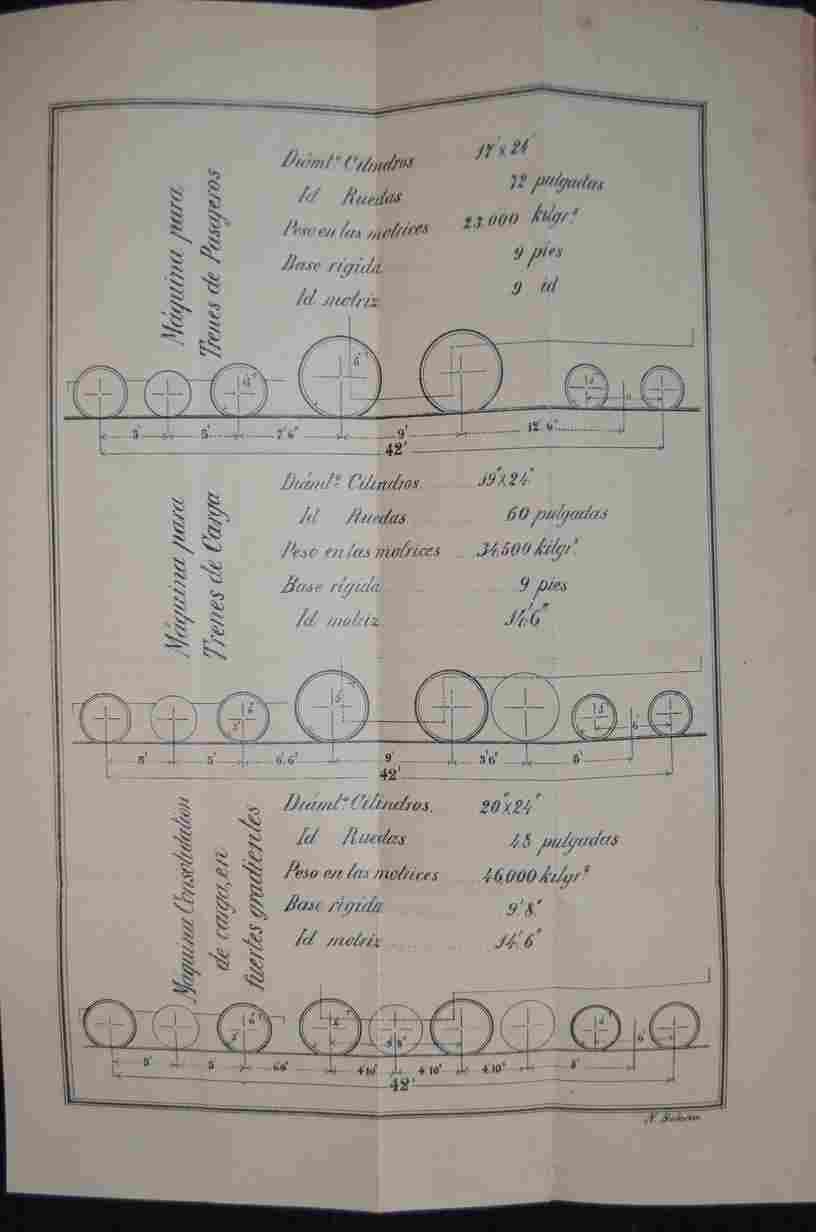 Máquina para
Trenes de Pasageros
Diámt.º Cilindros 17"x24"
Id Ruedas 72 pulgadas
Peso en las motrices 23.000 kilgr.s
Base rígida 9 pies
Id motriz 9 id
6'
5' 5' 7'6" 9' 12'6"
42'
Máquina para
Trenes de Carga
Diámt.º Cilindros 19"x24"
Id Ruedas 60 pulgadas
Peso en las motrices 34.500 kilgr.s
Base rígida 9 pies
Id motriz 14'6"
5' 5' 6'6" 9' 5'6" 8'
42'
Maquina Consolidation
de carga, en
fuertes gradientes
Diámt.º Cilindros. 20"x24"
Id Ruedas 48 pulgadas
Peso en las motrices 46.000 kilgr.s
Base rígida 9'8"
Id motriz 14'6"
5' 5' 6'6" 4'10" 4'10" 4'10" 8'
42'